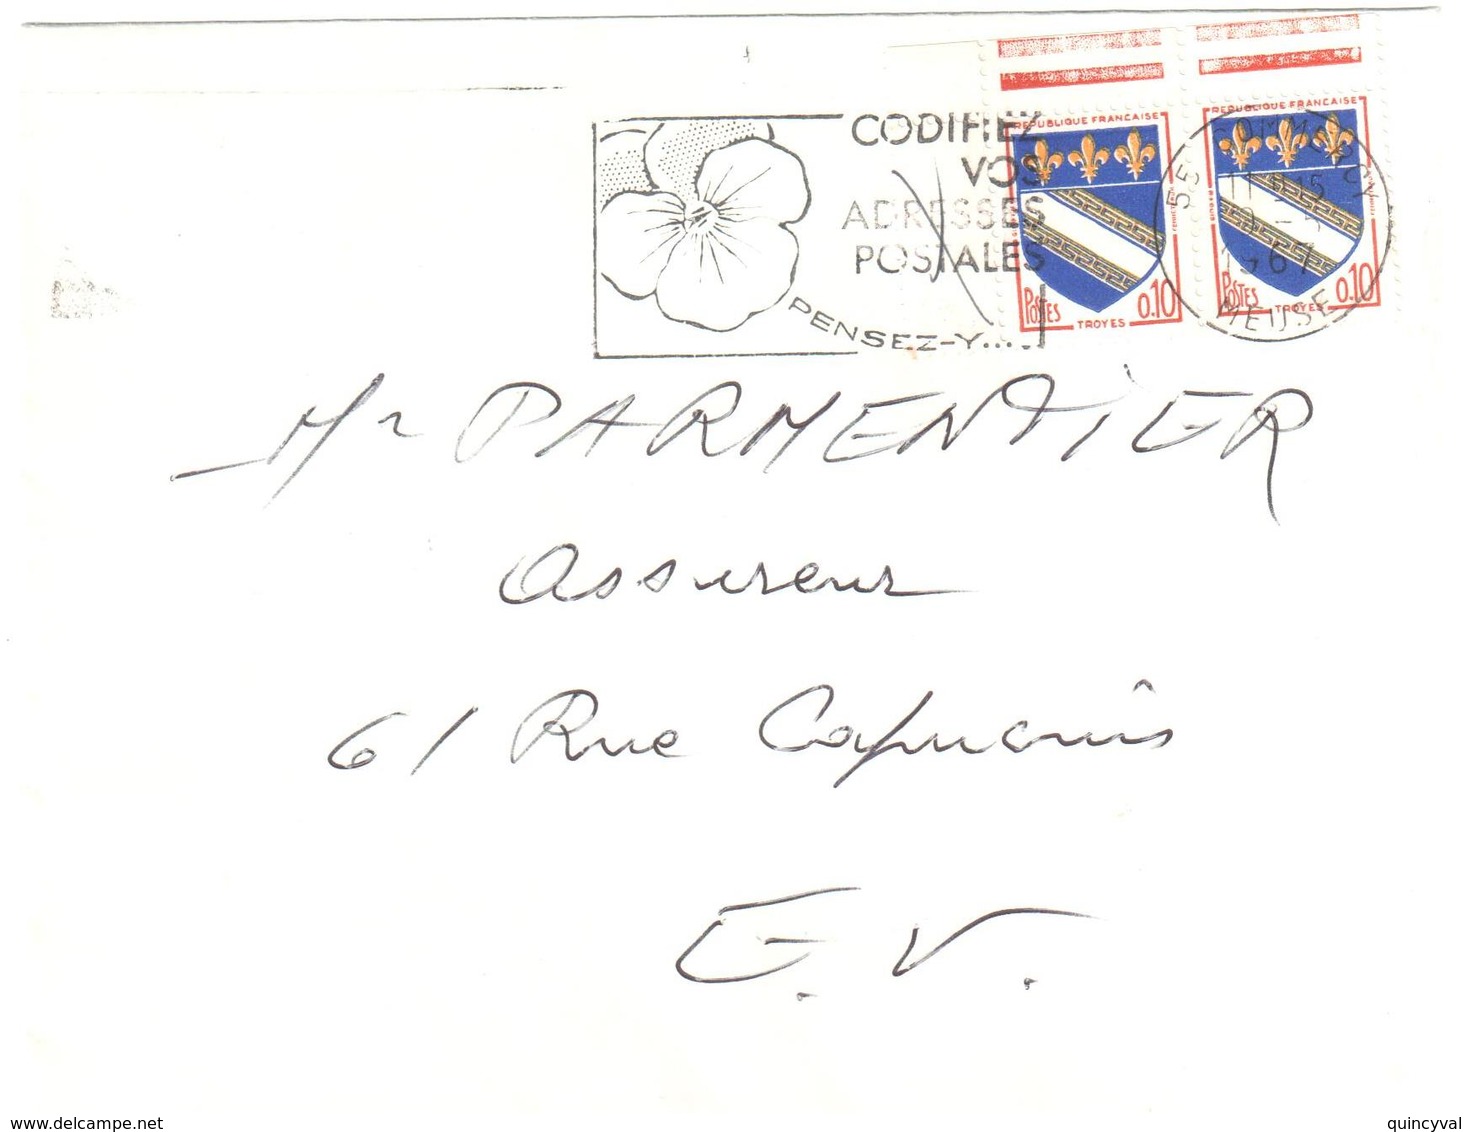 CODIFIEZ
VOS
ADRESSES
POSTALES
PENSEZ-Y....
REPUBLIQUE FRANCAISE
POSTES 0.10
TROYES
REPUBLIQUE FRANCAISE
POSTES 0.10
TROYES
55 COMMERCY
1967
MEUSE
Mr PARMENTIER
Assureur
61 Rue Capucins
E.V.
www.delcampe.net
quincyval